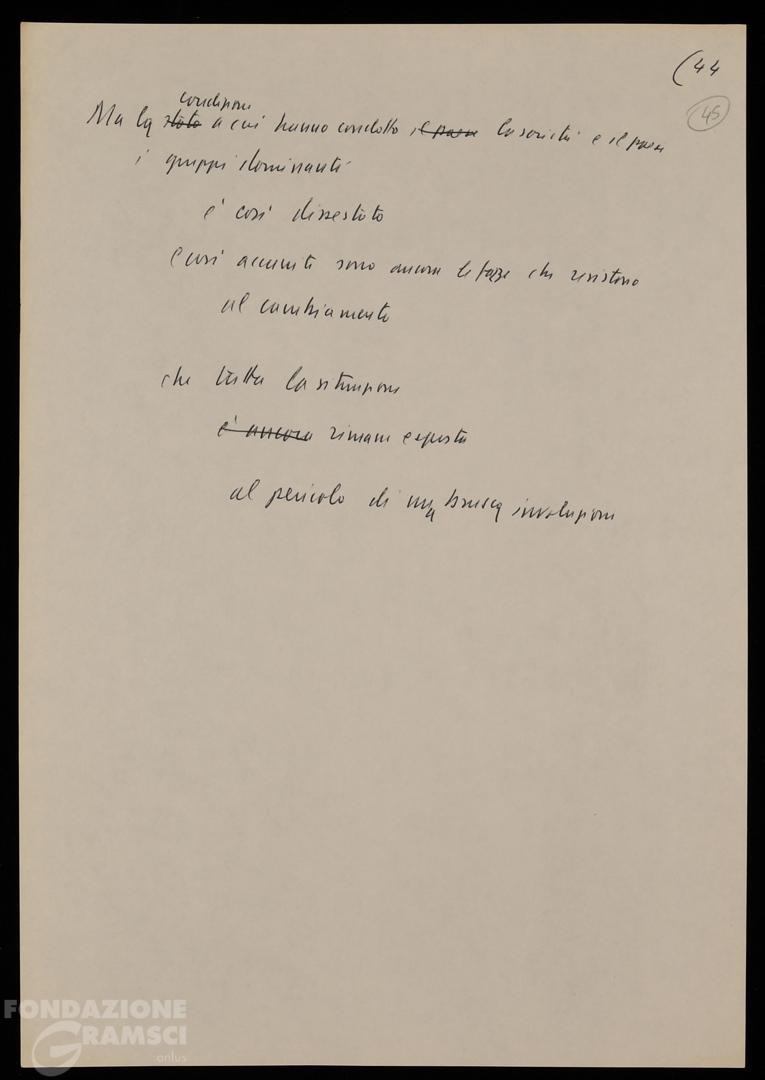 (44
45
condizione
Ma la stato a cui hanno condotto il paese la società e il paese
i gruppi dominanti
è così dissestato
e così accanite sono ancora le forze che resistono
al cambiamento
che tutta la situazione
è ancora rimane esposta
al pericolo di una brusca involuzione
FONDAZIONE
GRAMSCI
onlus